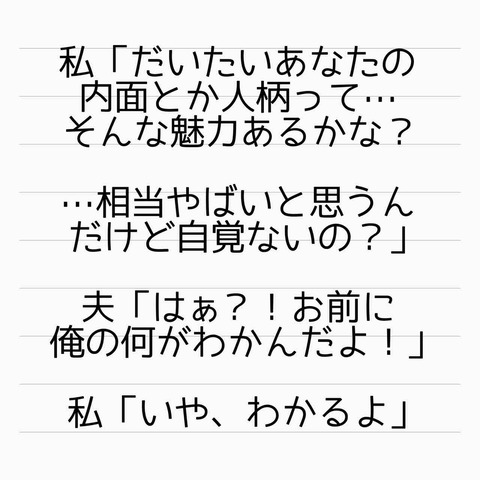 私「だいたいあなたの
内面とか人柄って…
そんな魅力あるかな？
…相当やばいと思うん
だけど自覚ないの？」
夫「はぁ？！お前に
俺の何がわかんだよ！」
私「いや、わかるよ」